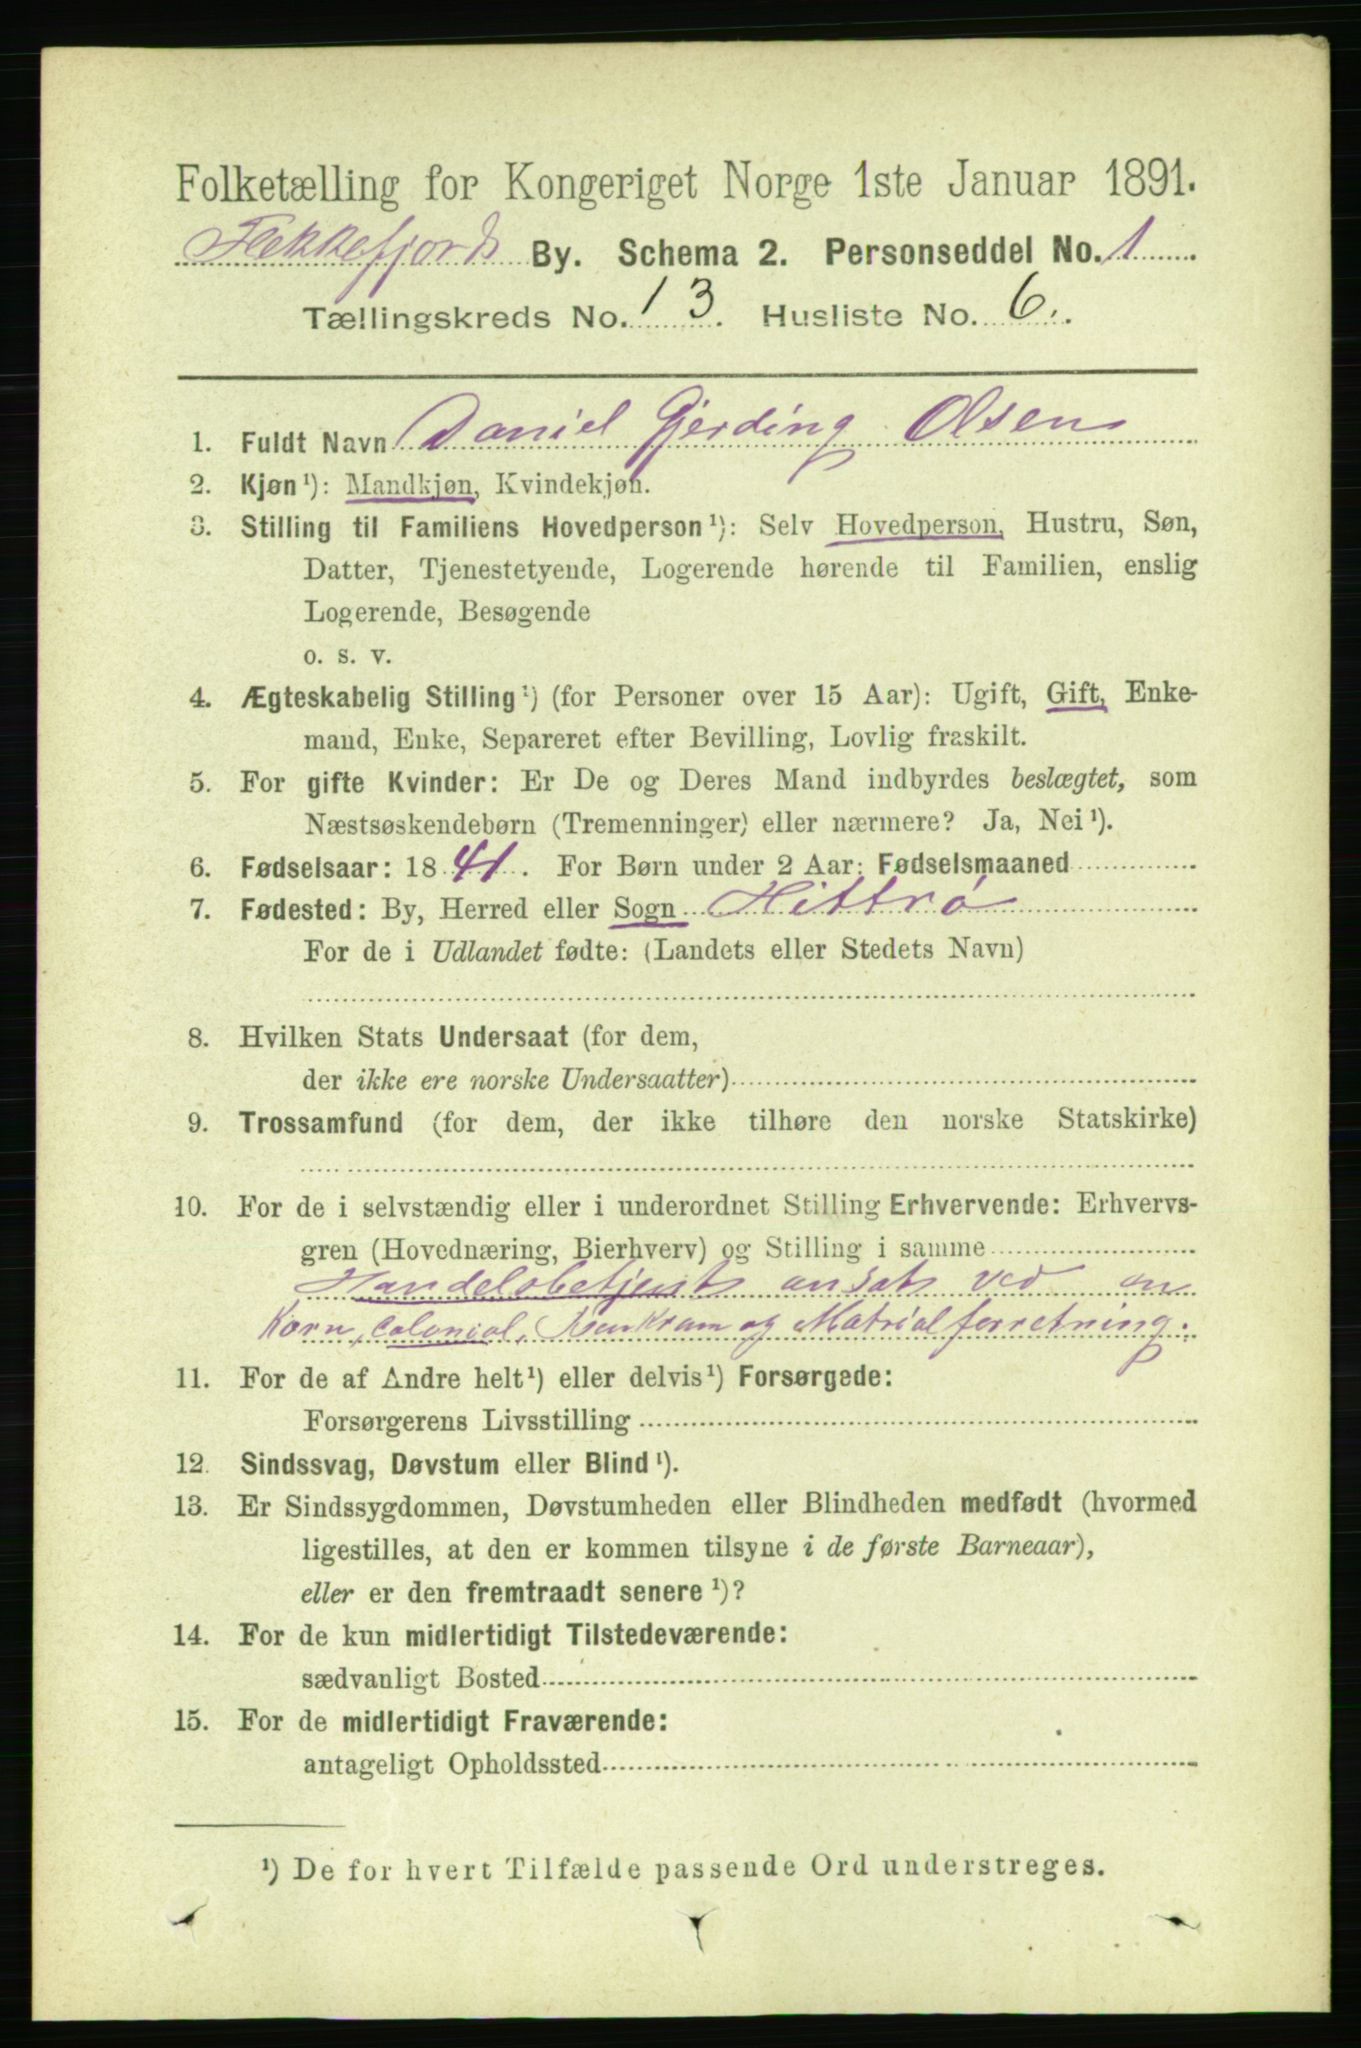 Folketælling for Kongeriget Norge 1ste Januar 1891.
Flekkefjords By. Schema 2. Personseddel No. 1
Tællingskreds No. 13. Husliste No. 6.
1. Fuldt Navn Daniel Gjerding Olsen
2. Kjøn¹): Mandkjøn, Kvindekjøn.
3. Stilling til Familiens Hovedperson¹): Selv Hovedperson, Hustru, Søn,
Datter, Tjenestetyende, Logerende hørende til Familien, enslig
Logerende, Besøgende
o. s. v.
4. Ægteskabelig Stilling¹) (for Personer over 15 Aar): Ugift, Gift, Enke-
mand, Enke, Separeret efter Bevilling, Lovlig fraskilt.
5. For gifte Kvinder: Er De og Deres Mand indbyrdes beslægtet, som
Næstsøskendebørn (Tremenninger) eller nærmere? Ja, Nei¹).
6. Fødselsaar: 1841. For Børn under 2 Aar: Fødselsmaaned
7. Fødested: By, Herred eller Sogn Hitterø
For de i Udlandet fødte: (Landets eller Stedets Navn)
8. Hvilken Stats Undersaat (for dem,
der ikke ere norske Undersaatter)
9. Trossamfund (for dem, der ikke tilhøre den norske Statskirke)
10. For de i selvstændig eller i underordnet Stilling Erhvervende: Erhvervs-
gren (Hovednæring, Bierhverv) og Stilling i samme
Handelsbetjent ansat ved en
Korn, Colonial, Kram og Matrialforretning.
11. For de af Andre helt¹) eller delvis¹) Forsørgede:
Forsørgerens Livsstilling
12. Sindssvag, Døvstum eller Blind¹).
13. Er Sindssygdommen, Døvstumheden eller Blindheden medfødt (hvormed
ligestilles, at den er kommen tilsyne i de første Barneaar),
eller er den fremtraadt senere¹)?
14. For de kun midlertidigt Tilstedeværende:
sædvanligt Bosted
15. For de midlertidigt Fraværende:
antageligt Opholdssted
¹) De for hvert Tilfælde passende Ord understreges.